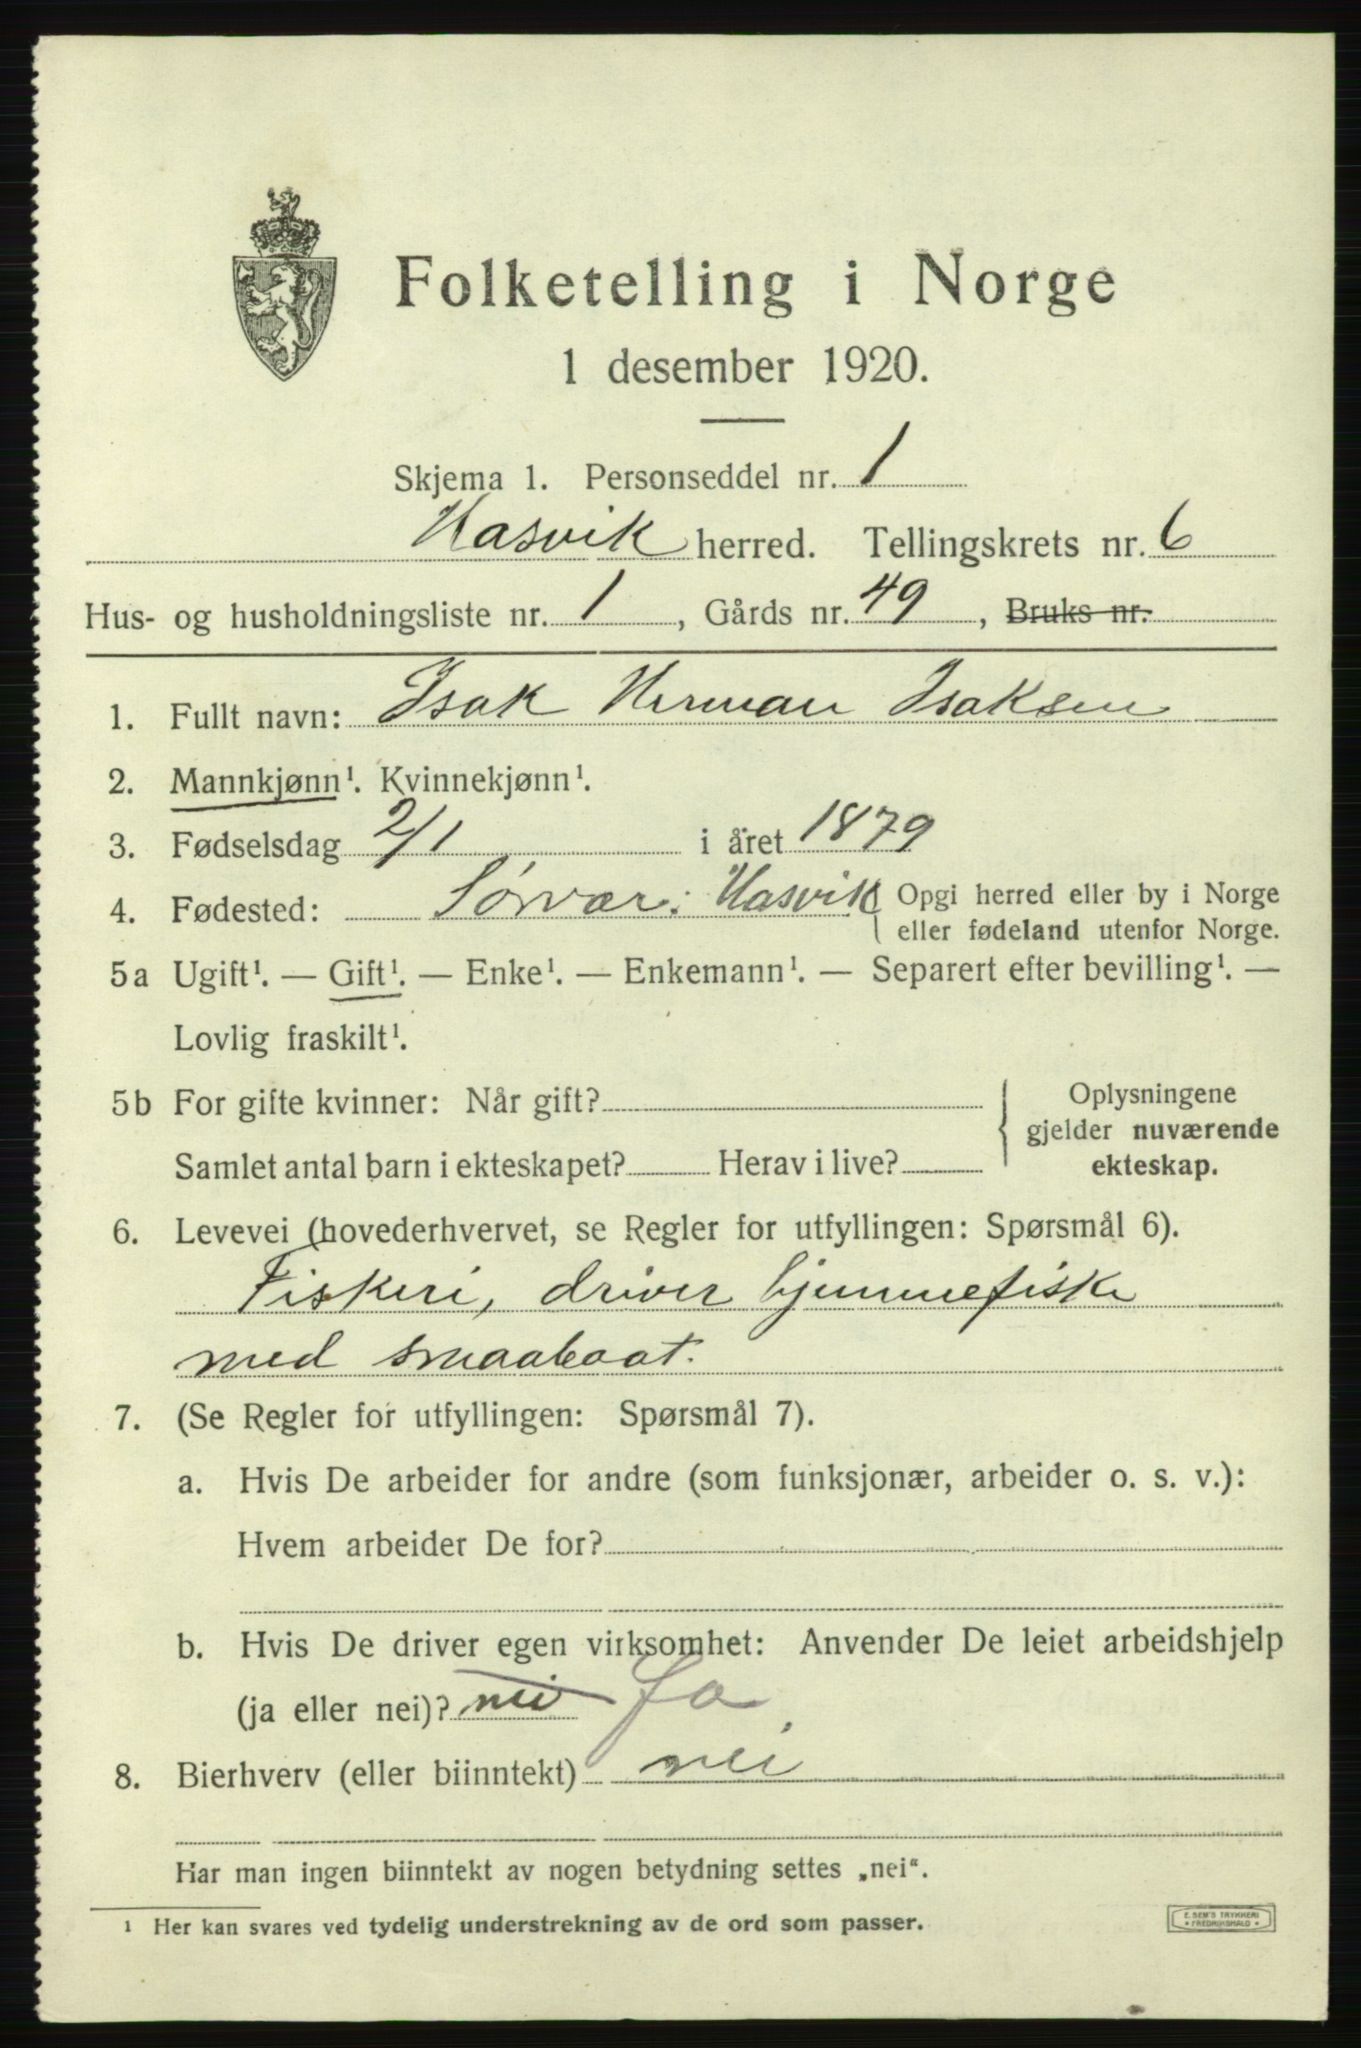 Folketelling i Norge
1 desember 1920.
Skjema 1. Personseddel nr. 1
Hasvik herred. Tellingskrets nr. 6
Hus- og husholdningsliste nr. 1, Gårds nr. 49, Bruks nr.
1. Fullt navn: Isak Herman Isaksen
2. Mannkjønn¹. Kvinnekjønn¹.
3. Fødselsdag 2/1 i året 1879
4. Fødested: Sørvær: Hasvik Opgi herred eller by i Norge
eller fødeland utenfor Norge.
5a Ugift¹. — Gift¹. — Enke¹. — Enkemann¹. — Separert efter bevilling¹. —
Lovlig fraskilt¹.
5b For gifte kvinner: Når gift? Oplysningene
gjelder nuværende
Samlet antal barn i ekteskapet? Herav i live? ekteskap.
6. Levevei (hovederhvervet, se Regler for utfyllingen: Spørsmål 6).
Fiskeri, driver hjemmefiske
med smaabaat.
7. (Se Regler for utfyllingen: Spørsmål 7).
a. Hvis De arbeider for andre (som funksjonær, arbeider o. s. v.):
Hvem arbeider De for?
b. Hvis De driver egen virksomhet: Anvender De leiet arbeidshjelp
(ja eller nei)? nei Ja
8. Bierhverv (eller biinntekt) nei
Har man ingen biinntekt av nogen betydning settes „nei“.
¹ Her kan svares ved tydelig understrekning av de ord som passer.
E. SEM'S TRYKKERI
FREDRIKSHALD